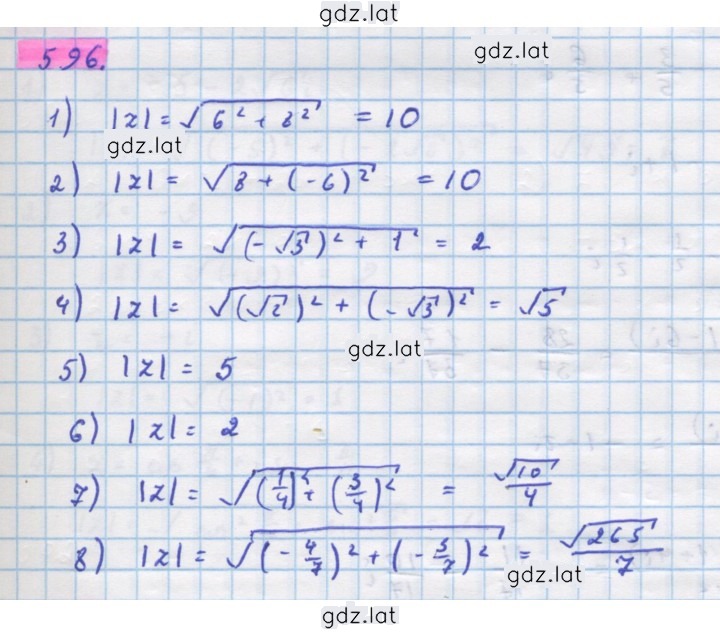 gdz.lat
596.
gdz.lat
1) |z| = √(6² + 8²) = 10
gdz.lat
2) |z| = √(8 + (-6)²) = 10
3) |z| = √((-√3)² + 1²) = 2
4) |z| = √((√2)² + (-√3)²) = √5
gdz.lat
5) |z| = 5
6) |z| = 2
7) |z| = √((1/4)² + (3/4)²) = √10/4
8) |z| = √((-4/7)² + (-5/7)²) = √265/7
gdz.lat
gdz.lat